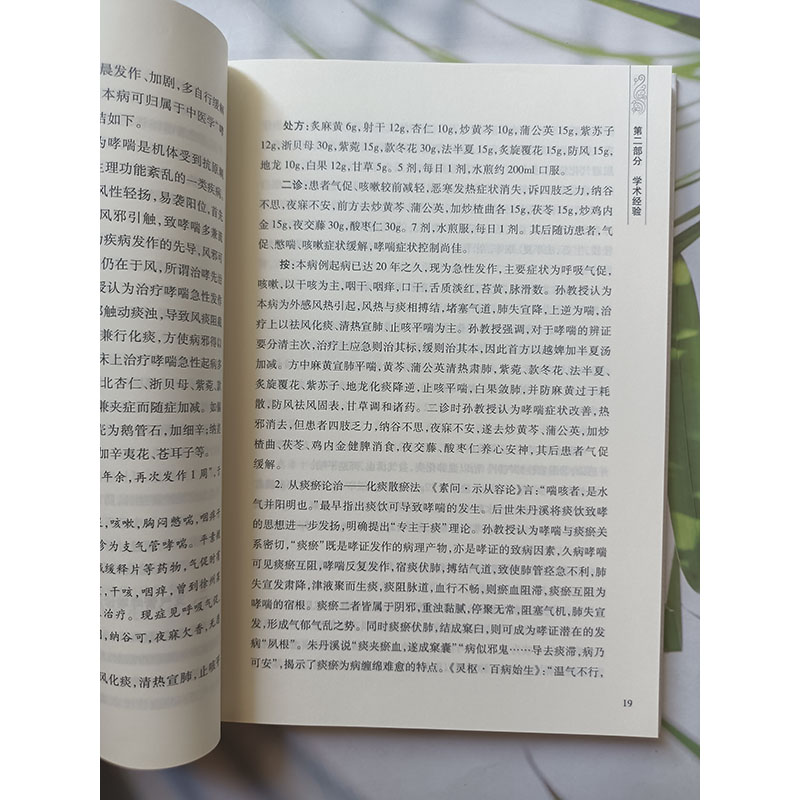 晨发作、加剧，多自行缓解
本病可归属于中医学“哮
结如下。
为哮喘是机体受到抗原刺
生理功能紊乱的一类疾病。
风性轻扬，易袭阳位，首先
风邪引触，致哮喘多兼
为疾病发作的先导，风邪可
仍在于风，所谓治哮先治
授认为治疗哮喘急性发作
邪触动痰浊，导致风痰阻
兼行化痰，方使病邪得以
床上治疗哮喘急性起病多
北杏仁、浙贝母、紫菀、款
兼夹症而随症加减。如偏
亮为鹅管石，加细辛；纳差
加辛夷花、苍耳子等。
年余，再次发作1周”，于
，咳嗽，胸闷憋喘，咽痒干
诊为支气管哮喘。平素
缓释片等药物，气促时
，干咳，咽痒，曾到徐州某
治疗。现症见呼吸气促，
，纳谷可，夜寐欠香，无恶
风化痰，清热宣肺，止咳平
第二部分 学术经验
处方：炙麻黄6g，射干12g，杏仁10g，炒黄芩10g，蒲公英15g，紫苏子
12g，浙贝母30g，紫菀15g，款冬花30g，法半夏15g，炙旋覆花15g，防风15g，
地龙10g，白果12g，甘草5g。5剂，每日1剂，水煎约200ml口服。
二诊：患者气促、咳嗽较前减轻，恶寒发热症状消失，诉四肢乏力，纳谷
不思，夜寐不安，前方去炒黄芩、蒲公英，加炒楂曲各15g，茯苓15g，炒鸡内
金15g，夜交藤30g，酸枣仁30g。7剂，水煎服，每日1剂。其后随访患者，气
促、憋喘、咳嗽症状缓解，哮喘症状控制尚佳。
按：本病例起病已达20年之久，现为急性发作，主要症状为呼吸气促，
咳嗽，以干咳为主，咽干、咽痒，口干，舌质淡红，苔黄，脉滑数。孙教授认为
本病为外感风热引起，风热与痰相搏结，堵塞气道，肺失宣降，上逆为喘，
治疗上以祛风化痰、清热宣肺、止咳平喘为主。孙教授强调，对于哮喘的辨证
要分清主次，治疗上应急则治其标，缓则治其本，因此首方以越婢加半夏汤
加减。方中麻黄宣肺平喘，黄芩、蒲公英清热肃肺，紫菀、款冬花、法半夏、
炙旋覆花、紫苏子、地龙化痰降逆，止咳平喘，白果敛肺，并防麻黄过于耗
散，防风祛风固表，甘草调和诸药。二诊时孙教授认为哮喘症状改善，热
邪消去，但患者四肢乏力、纳谷不思、夜寐不安，遂去炒黄芩、蒲公英，加炒
楂曲、茯苓、鸡内金健脾消食，夜交藤、酸枣仁养心安神，其后患者气促
缓解。
2. 从痰瘀论治——化痰散瘀法 《素问·示从容论》言：“喘咳者，是水
气并阳明也。”最早指出痰饮可导致哮喘的发生。后世朱丹溪将痰饮致哮
的思想进一步发扬，明确提出“专主于痰”理论。孙教授认为哮喘与痰瘀关
系密切，“痰瘀”既是哮证发作的病理产物，亦是哮证的致病因素，久病哮喘
可见痰瘀互阻，哮喘反复发作，宿痰伏肺，搏结气道，致使肺管痉急不利，肺
失宣发肃降，津液聚而生痰，痰阻脉道，血行不畅，则瘀血阻滞，痰瘀互阻为
哮喘的宿根。痰瘀二者皆属于阴邪，重浊黏腻，停聚无常，阻塞气机，肺失宣
发，形成气郁气乱之势。同时痰瘀伏肺，结成窠臼，则可成为哮证潜在的发
病“夙根”。朱丹溪说“痰夹瘀血，遂成窠囊”“病似邪鬼……导去痰滞，病乃
可安”，揭示了痰瘀为病缠绵难愈的特点。《灵枢·百病始生》：“温气不行，
19